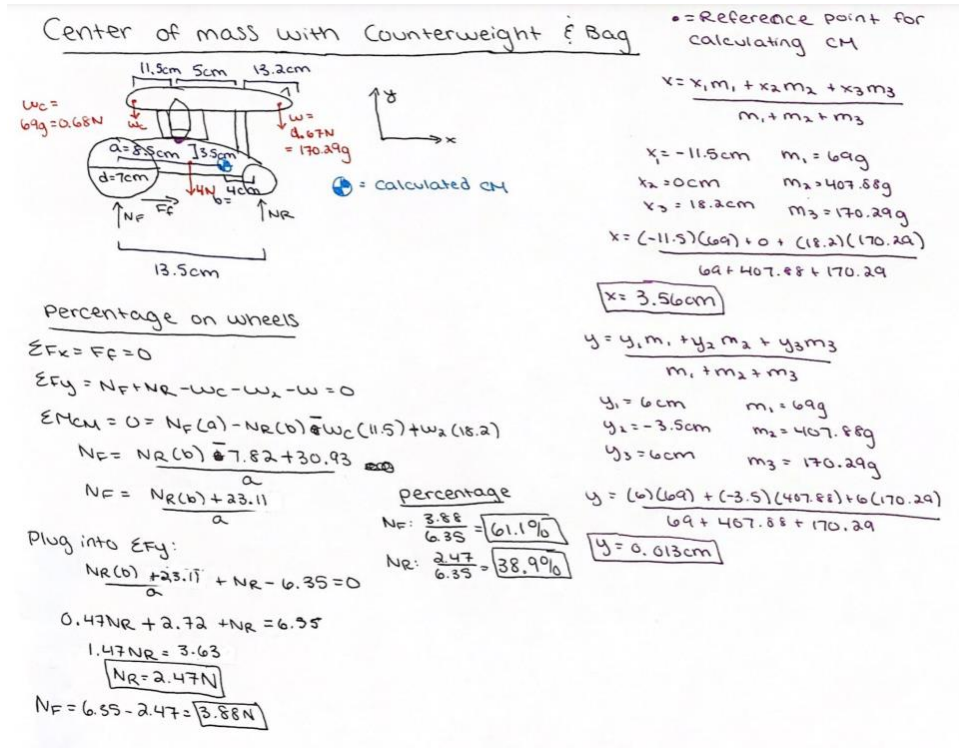 Center of mass with Counterweight & Bag
• = Reference point for
calculating CM
11.5cm 5cm 13.2cm
Wc =
69g = 0.68N
Wc
W =
1.67N
= 170.29g
y
x
a = 8.5cm
3.5cm
d = 7cm
4N
4cm
b =
NF
Ff
NR
13.5cm
= calculated CM
Percentage on wheels
ΣFx = Ff = 0
ΣFy = NF + NR - Wc - W2 - W = 0
ΣMCM = 0 = NF(a) - NR(b) - Wc(11.5) + W2(18.2)
NF = NR(b) - 7.82 + 30.93
a
NF = NR(b) + 23.11
a
Plug into ΣFy:
NR(b) + 23.11 + NR - 6.35 = 0
a
0.47NR + 2.72 + NR = 6.35
1.47NR = 3.63
NR = 2.47N
NF = 6.35 - 2.47 = 3.88N
Percentage
NF: 3.88 = 61.1%
6.35
NR: 2.47 = 38.9%
6.35
x = x1m1 + x2m2 + x3m3
m1 + m2 + m3
x1 = -11.5cm m1 = 69g
x2 = 0cm m2 = 407.88g
x3 = 18.2cm m3 = 170.29g
x = (-11.5)(69) + 0 + (18.2)(170.29)
69 + 407.88 + 170.29
x = 3.56cm
y = y1m1 + y2m2 + y3m3
m1 + m2 + m3
y1 = 6cm m1 = 69g
y2 = -3.5cm m2 = 407.88g
y3 = 6cm m3 = 170.29g
y = (6)(69) + (-3.5)(407.88) + 6(170.29)
69 + 407.88 + 170.29
y = 0.013cm